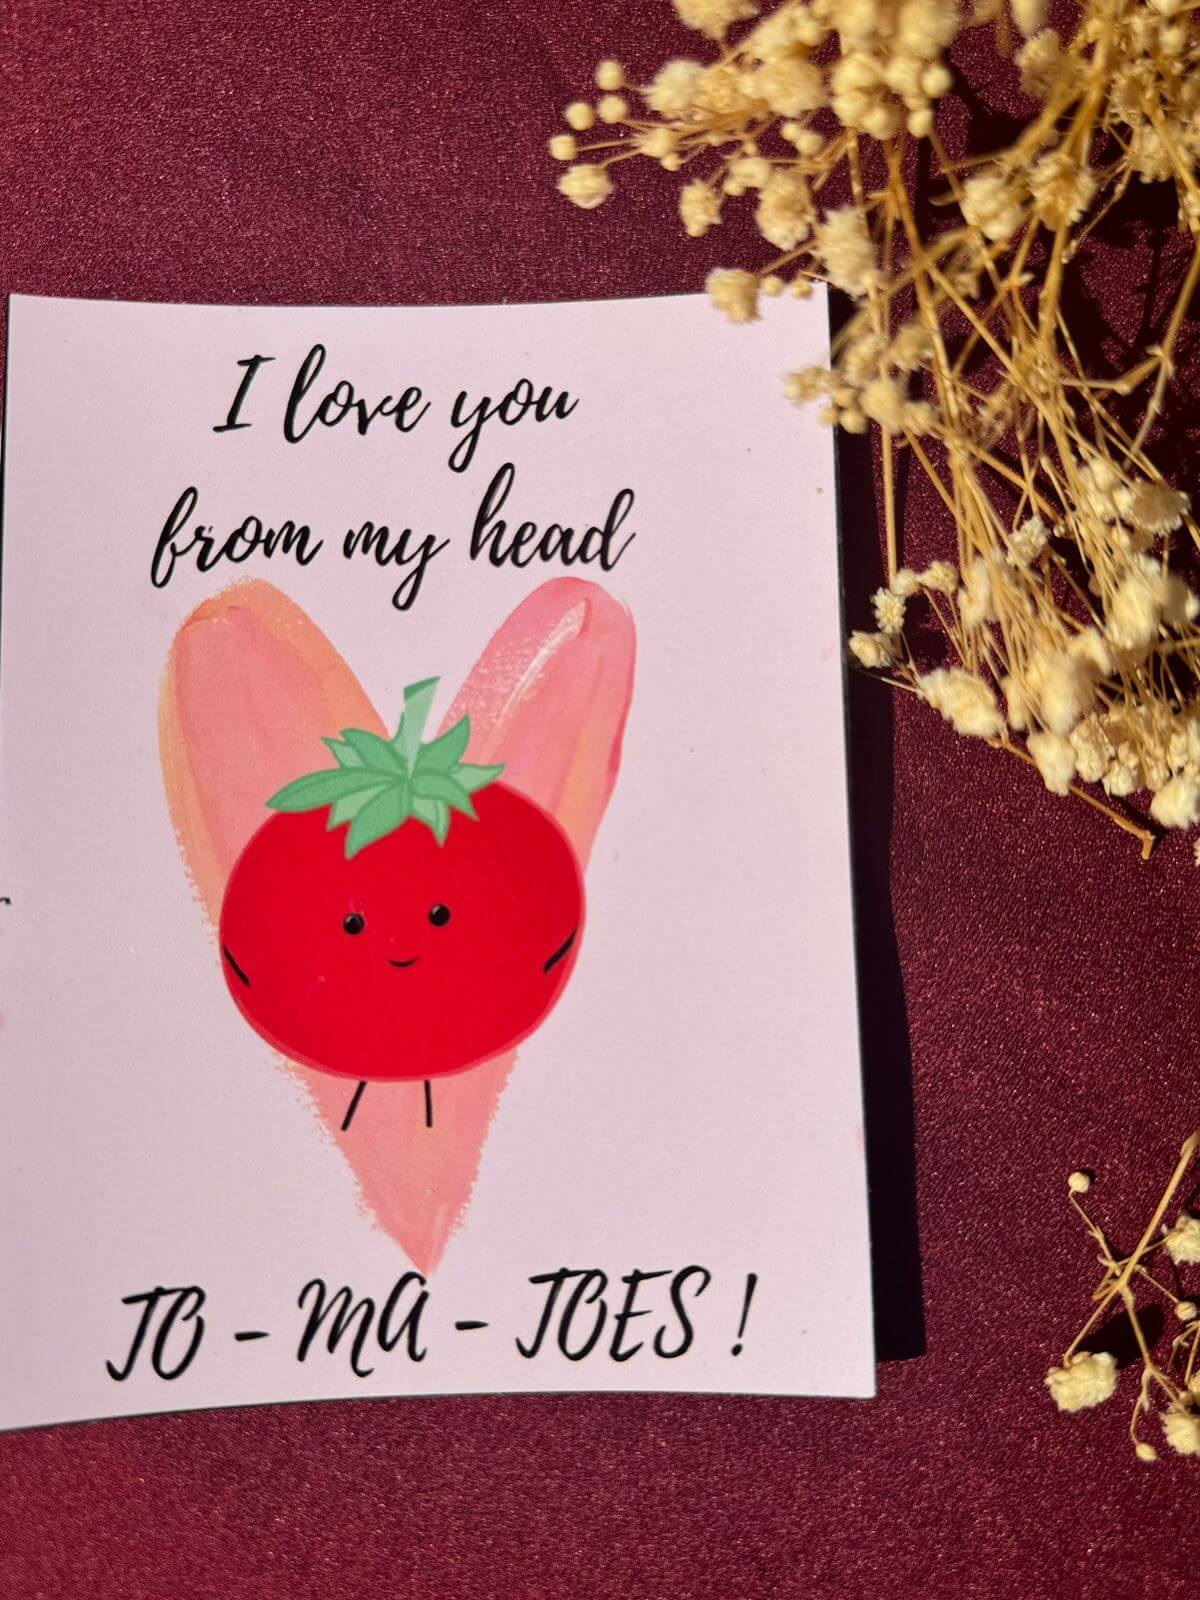 I love you
from my head
TO - MA - TOES !